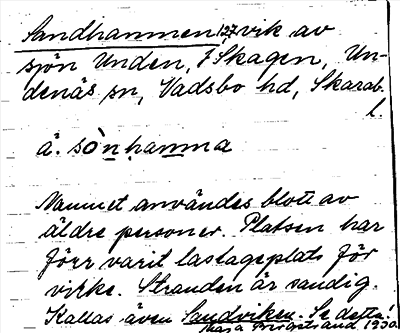 Sandhammen, 127 vik av
sjön Unden, f Skagen, Un-
denäs sn, Vadsbo hd, Skarab.
l.
å. sònhamna
Namnet användes blott av
äldre personer. Platsen har
förr varit lastageplats för
virke. Stranden är sandig.
Kallas även Sandviken. Se detta!
1930